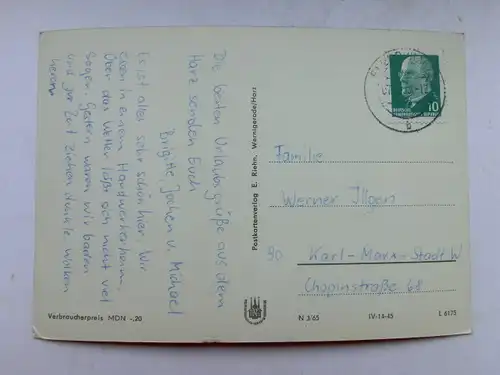 Die besten Urlaubsgrüße aus dem
Harz senden Euch
Brigitte, Jochen u. Michael
Es ist alles sehr schön hier. Wir
essen in einem Handwerkerheim.
Über das Wetter läßt sich nicht viel
sagen. Gestern waren wir baden
und zur Zeit ziehen dunkle Wolken
heran.
Verbraucherpreis MDN -,20
Postkartenverlag E. Riehn, Wernigerode/Harz
10
Familie
Werner Illgen
90 Karl-Marx-Stadt W
Chopinstraße 68
N 3/65
IV-14-45
E 6175